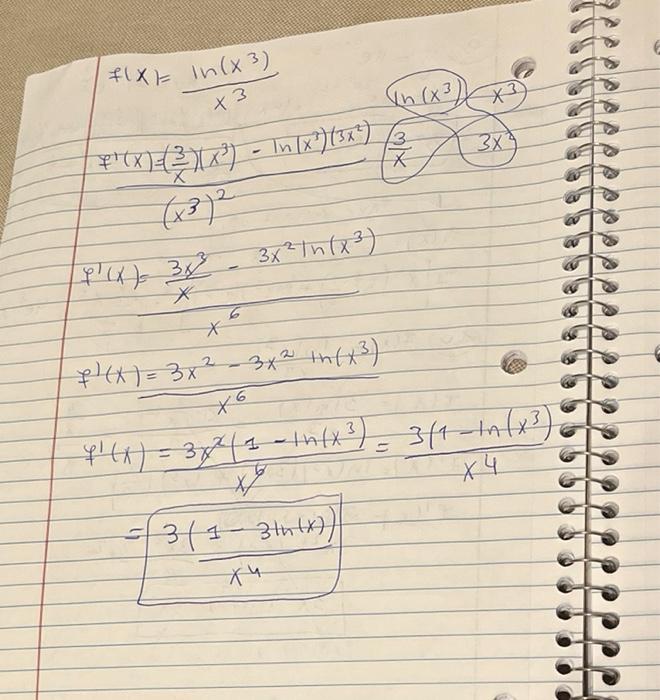 f(x) = ln(x³) / x³
ln(x³) x³
3/x 3x²
f'(x) = ((3/x)(x³) - ln(x³)(3x²)) / (x³)²
f'(x) = (3x³/x - 3x² ln(x³)) / x⁶
f'(x) = (3x² - 3x² ln(x³)) / x⁶
f'(x) = 3x²(1 - ln(x³) / x⁶ = 3(1 - ln(x³) / x⁴
= 3(1 - 3ln(x)) / x⁴